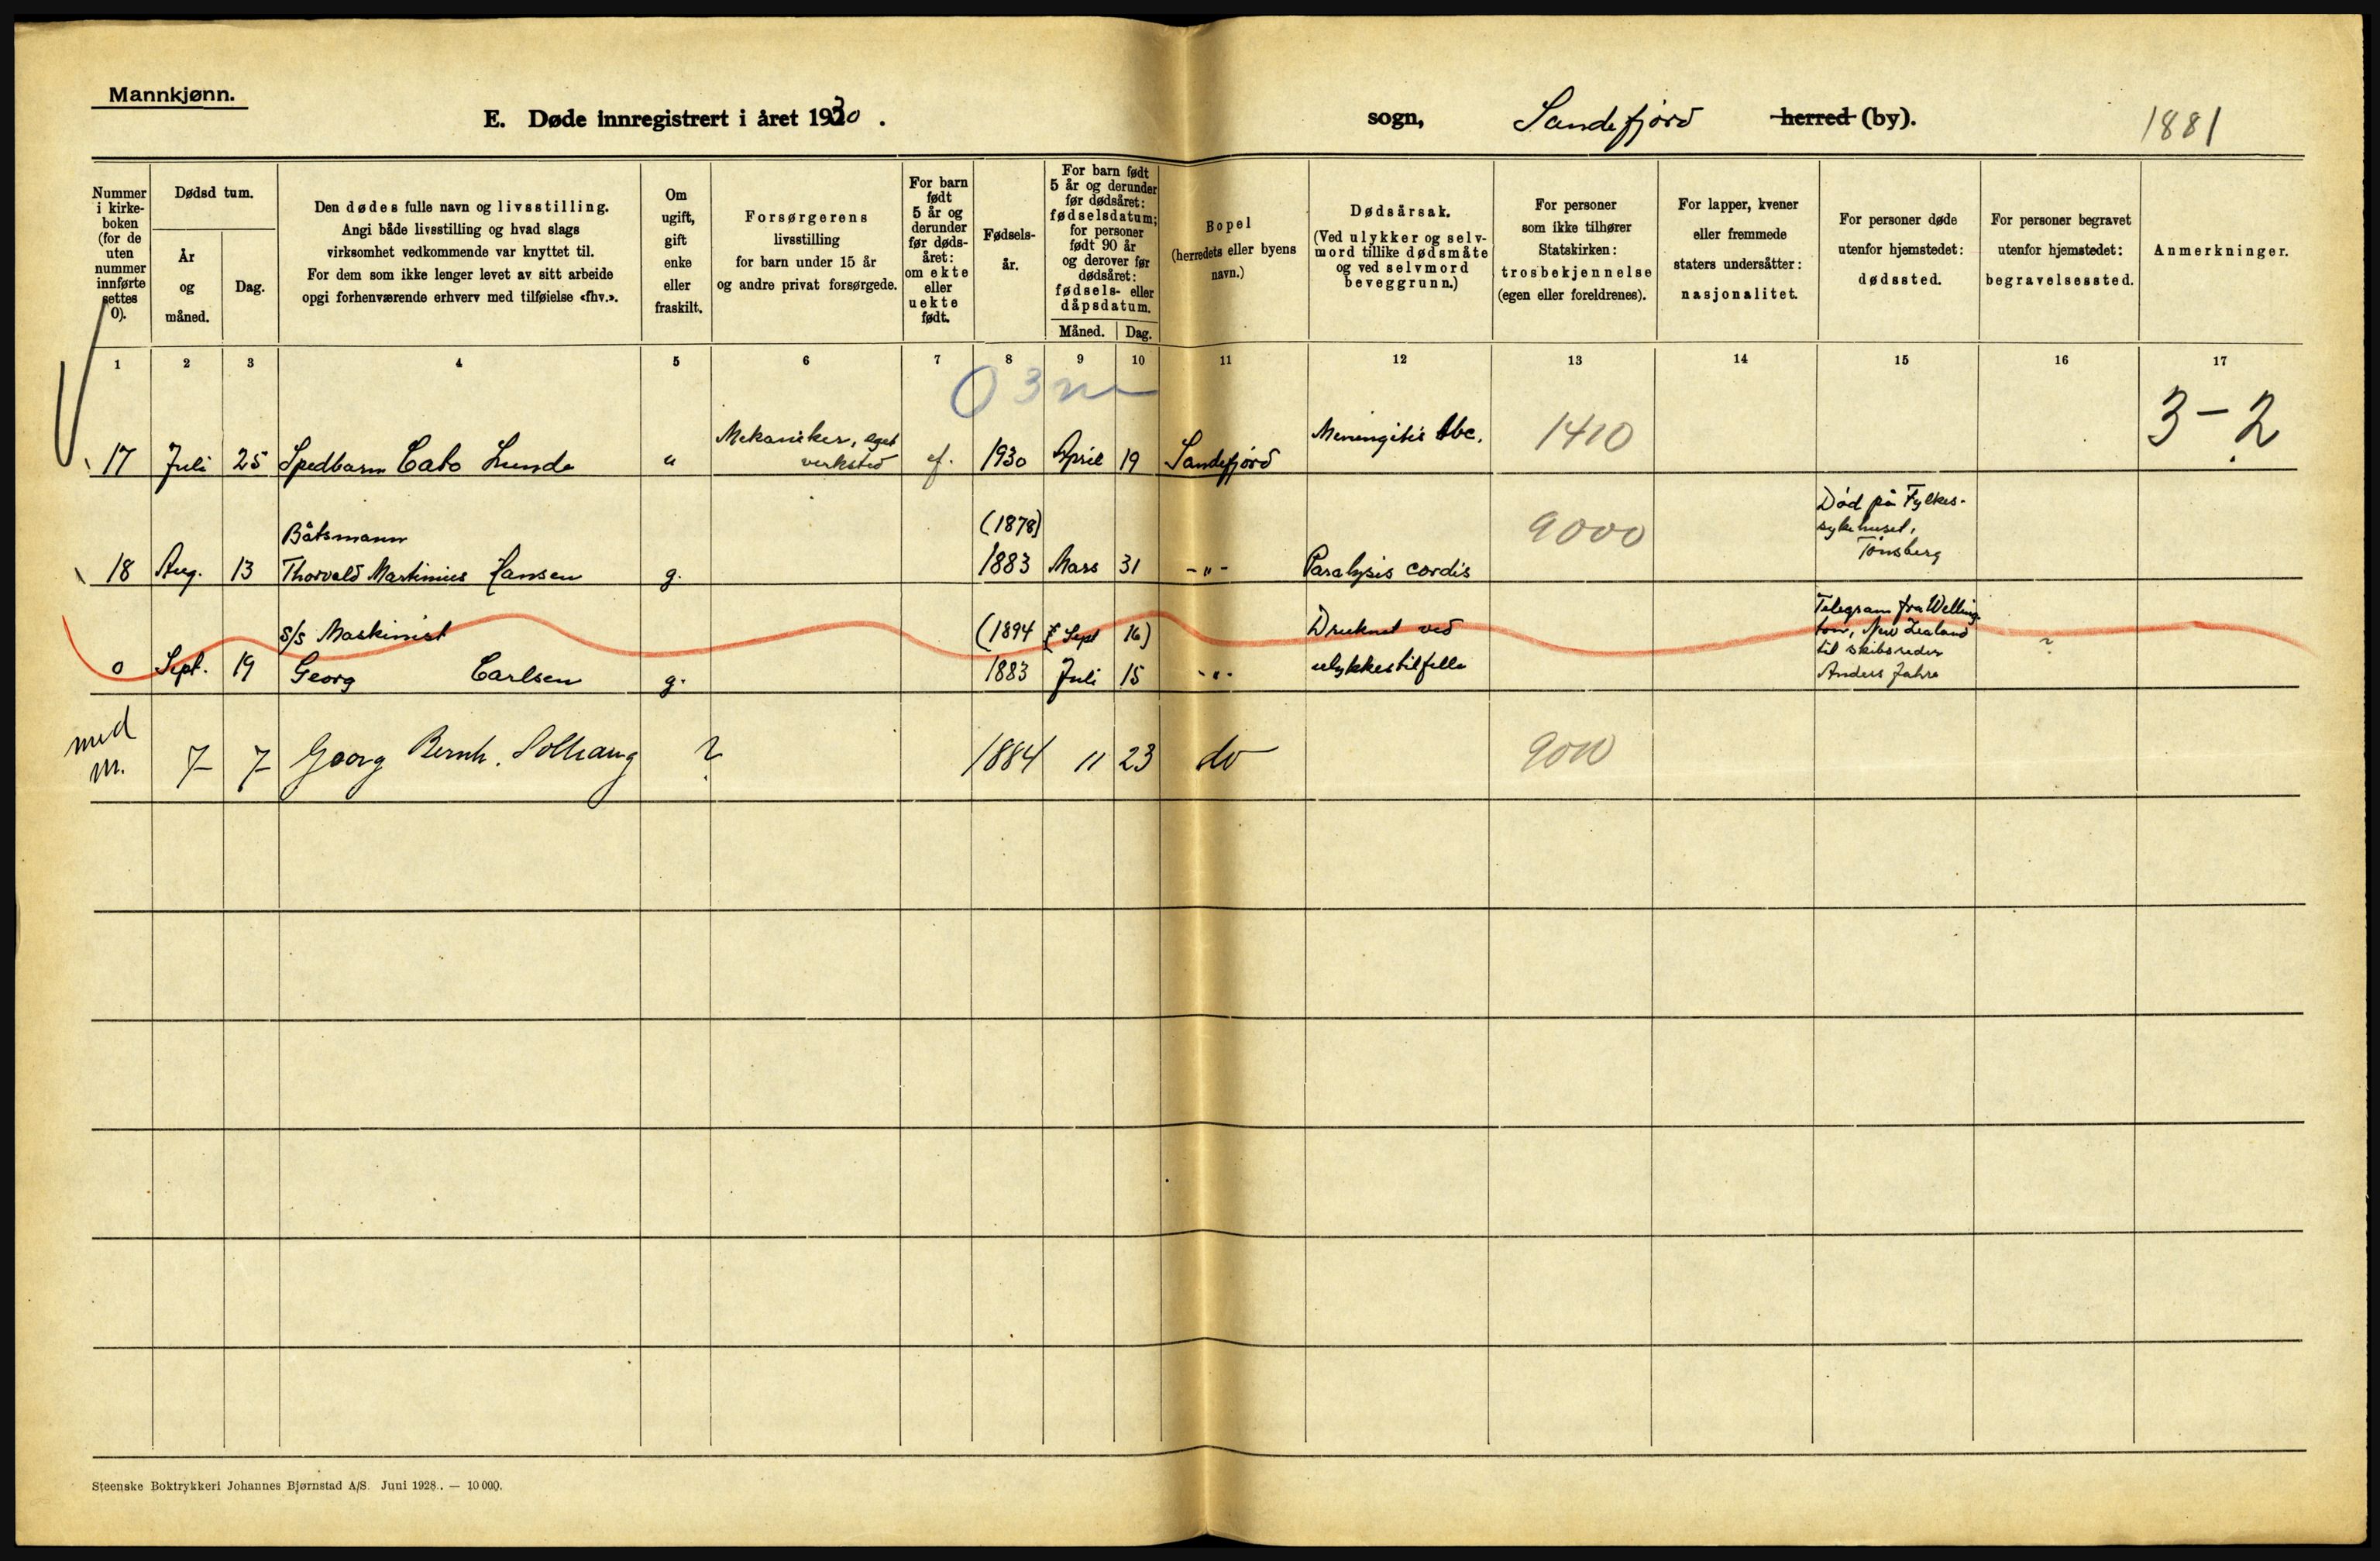 Mannkjønn.
E. Døde innregistrert i året 1930.
sogn, Sandefjord herred (by).
1881
Nummer i kirkeboken (for de uten nummer innførte settes 0).
Dødsd tum.
År og måned.
Dag.
Den dødes fulle navn og livsstilling.
Angi både livsstilling og hvad slags
virksomhet vedkommende var knyttet til.
For dem som ikke lenger levet av sitt arbeide
opgi forhenværende erhverv med tilføielse «fhv.».
Om ugift, gift enke eller fraskilt.
Forsørgerens
livsstilling
for barn under 15 år
og andre privat forsørgede.
For barn født 5 år og derunder før dødsåret: om ekte eller uekte født.
Fødselsår.
For barn født 5 år og derunder før dødsåret: fødselsdatum; for personer født 90 år og derover før dødsåret: fødsels- eller dåpsdatum.
Måned. Dag.
Bopel
(herredets eller byens
navn.)
Dødsårsak.
(Ved ulykker og selvmord tillike dødsmåte og ved selvmord beveggrunn.)
For personer
som ikke tilhører
Statskirken:
trosbekjennelse
(egen eller foreldrenes).
For lapper, kvener
eller fremmede
staters undersåtter:
nasjonalitet.
For personer døde
utenfor hjemstedet:
dødssted.
For personer begravet
utenfor hjemstedet:
begravelsessted.
Anmerkninger.
1 2 3 4 5 6 7 8 9 10 11 12 13 14 15 16 17
0 3 m
3 - 2
17 Juli 25 Spedbarn Cato Lunde u Mekaniker, eget verksted ef. 1930 April 19 Sandefjord Meningitis tbc. 1410
Båtsmann
(1878)
18 Aug. 13 Thorvald Martinius Hansen g. 1883 Mars 31 -"- Paralysis cordis 9000
Død på Fylkes-
sykehuset,
Tönsberg
s/s Maskinist
(1894 Sept 16)
Druknet ved
0 Sept. 19 Georg Carlsen g. 1883 Juli 15 -"- ulykkestilfelle
Telegram fra Welling-
ton, New Zealand
til skibsreder
Anders Jahre
?
med
m. 7 7 Georg Bernh. Solhaug ? 1884 11 23 do 9000
Steenske Boktrykkeri Johannes Bjørnstad A/S. Juni 1928. — 10 000.